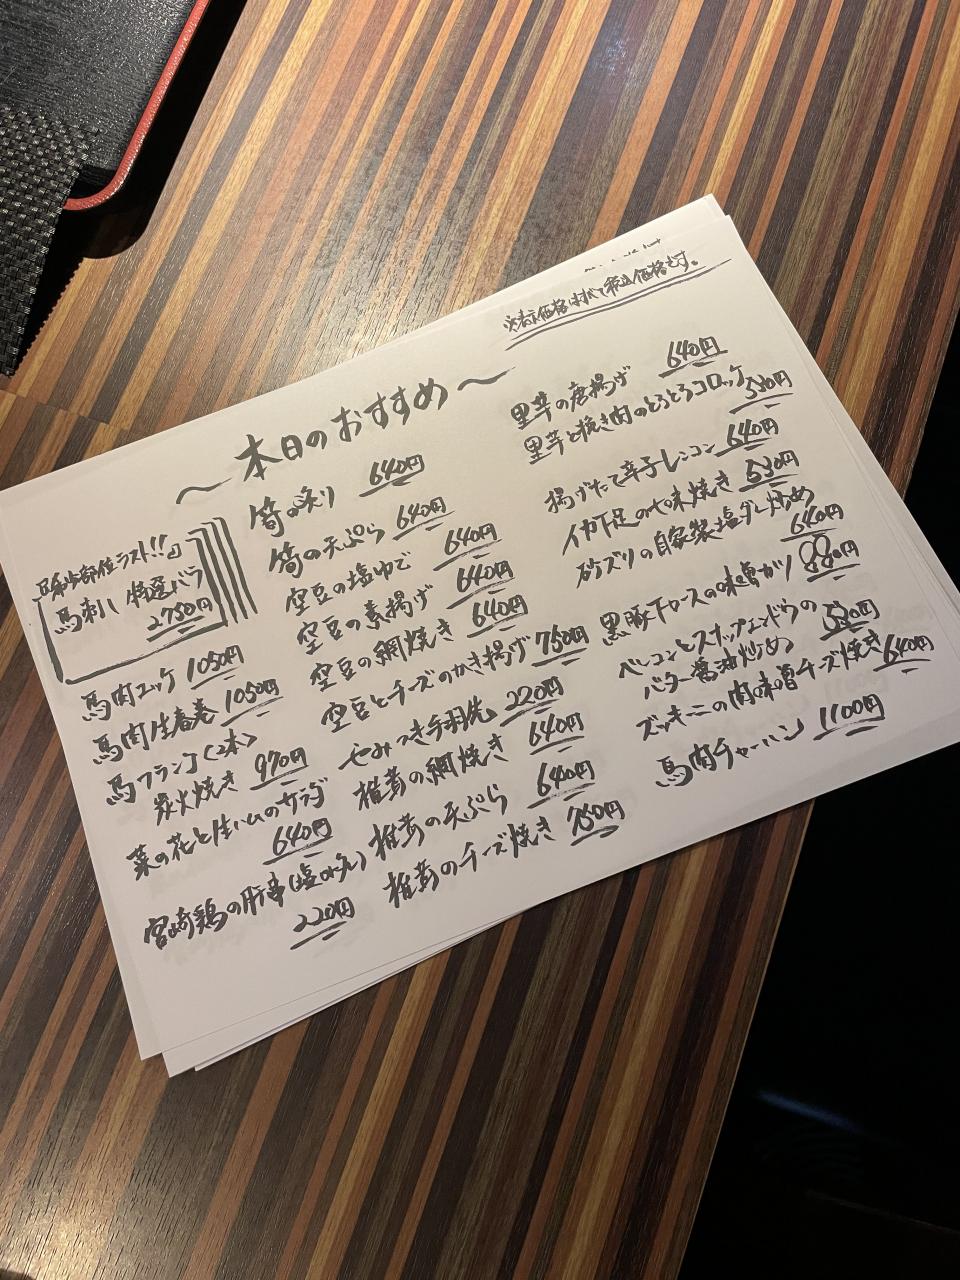 ※表示価格はすべて税込価格です。
〜本日のおすすめ〜
『希少部位ラスト!!』
馬刺し 特選バラ
2750円
馬肉ユッケ 1050円
馬肉生春巻 1050円
馬フランク〈2本〉
炭火焼き 970円
菜の花と生ハムのサラダ
640円
宮崎鶏の肝串(塩or タレ)
220円
筍の炙り 640円
筍の天ぷら 640円
空豆の塩ゆで 640円
空豆の素揚げ 640円
空豆の網焼き 640円
空豆とチーズのかき揚げ 750円
やみつき手羽先 220円
椎茸の網焼き 640円
椎茸の天ぷら 640円
椎茸のチーズ焼き 750円
里芋の唐揚げ 640円
里芋と挽き肉のとろとろコロッケ 530円
揚げたて辛子レンコン 640円
イカ下足の七味焼き 530円
砂ズリの自家製塩ダレ炒め
640円
黒豚ロースの味噌カツ 880円
ベーコンとスナップエンドウの
バター醤油炒め 530円
ズッキーニの肉味噌チーズ焼き 640円
馬肉チャーハン 1100円